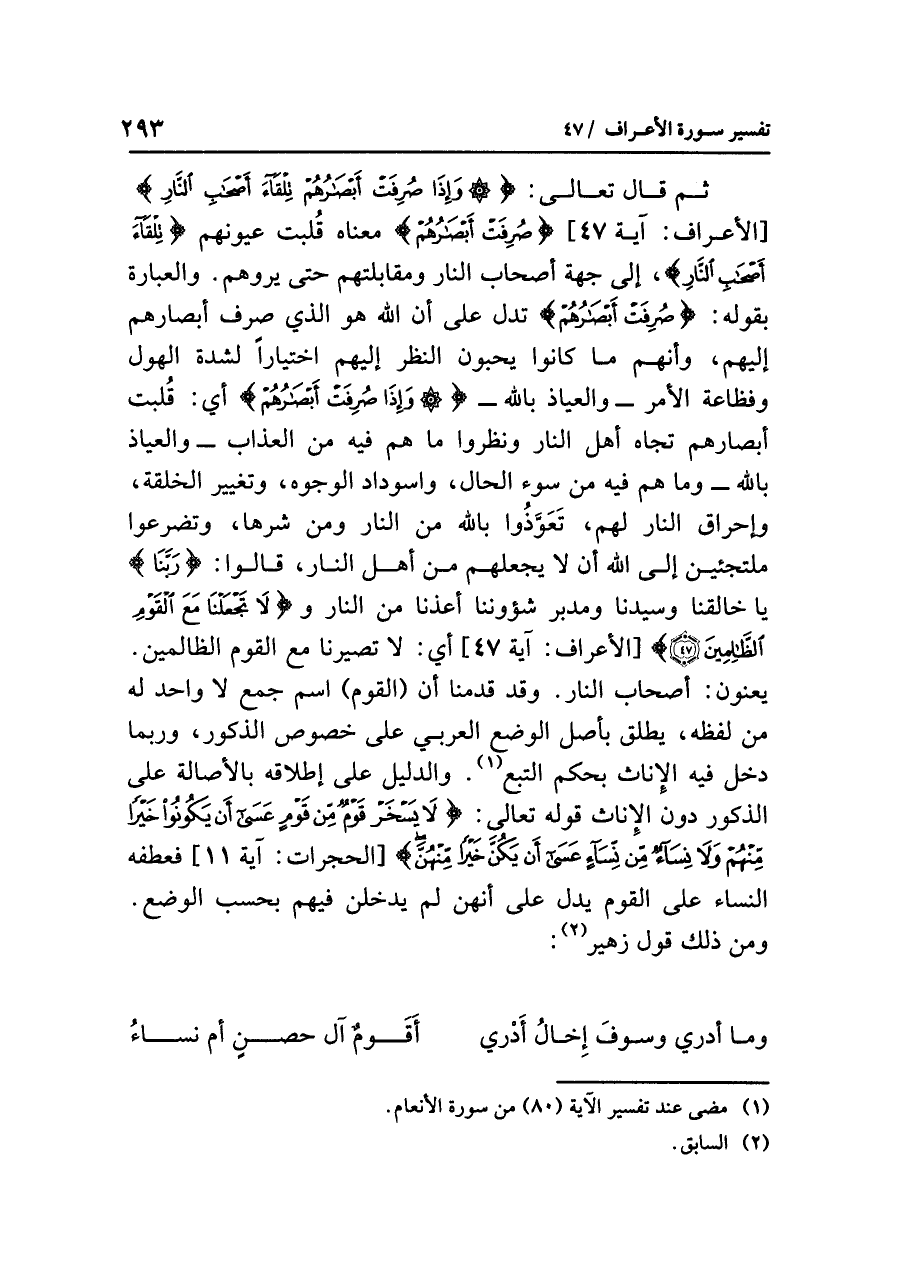 تفسير سورة الأعراف / ٤٧
٢٩٣
ثم قال تعالى: ﴿ ۞ وَإِذَا صُرِفَتْ أَبْصَٰرُهُمْ تِلْقَآءَ أَصْحَٰبِ ٱلنَّارِ ﴾
[الأعراف: آية ٤٧] ﴿صُرِفَتْ أَبْصَٰرُهُمْ﴾ معناه قُلبت عيونهم ﴿تِلْقَآءَ
أَصْحَٰبِ ٱلنَّارِ﴾، إلى جهة أصحاب النار ومقابلتهم حتى يروهم. والعبارة
بقوله: ﴿صُرِفَتْ أَبْصَٰرُهُمْ﴾ تدل على أن الله هو الذي صرف أبصارهم
إليهم، وأنهم ما كانوا يحبون النظر إليهم اختياراً لشدة الهول
وفظاعة الأمر ــ والعياذ بالله ــ ﴿ ۞ وَإِذَا صُرِفَتْ أَبْصَٰرُهُمْ﴾ أي: قُلبت
أبصارهم تجاه أهل النار ونظروا ما هم فيه من العذاب ــ والعياذ
بالله ــ وما هم فيه من سوء الحال، واسوداد الوجوه، وتغيير الخلقة،
وإحراق النار لهم، تَعَوَّذُوا بالله من النار ومن شرها، وتضرعوا
ملتجئين إلى الله أن لا يجعلهم من أهل النار، قالوا: ﴿رَبَّنَا﴾
يا خالقنا وسيدنا ومدبر شؤوننا أعذنا من النار و ﴿لَا تَجْعَلْنَا مَعَ ٱلْقَوْمِ
ٱلظَّٰلِمِينَ ٤٧﴾ [الأعراف: آية ٤٧] أي: لا تصيرنا مع القوم الظالمين.
يعنون: أصحاب النار. وقد قدمنا أن (القوم) اسم جمع لا واحد له
من لفظه، يطلق بأصل الوضع العربي على خصوص الذكور، وربما
دخل فيه الإناث بحكم التبع(١). والدليل على إطلاقه بالأصالة على
الذكور دون الإناث قوله تعالى: ﴿لَا يَسْخَرْ قَوْمٌ مِّن قَوْمٍ عَسَىٰٓ أَن يَكُونُوا۟ خَيْرًا
مِّنْهُمْ وَلَا نِسَآءٌ مِّن نِّسَآءٍ عَسَىٰٓ أَن يَكُنَّ خَيْرًا مِّنْهُنَّۖ﴾ [الحجرات: آية ١١] فعطفه
النساء على القوم يدل على أنهن لم يدخلن فيهم بحسب الوضع.
ومن ذلك قول زهير(٢):
وما أدري وسوفَ إِخالُ أَدْري أَقَومٌ آل حصنٍ أم نساءُ
(١) مضى عند تفسير الآية (٨٠) من سورة الأنعام.
(٢) السابق.